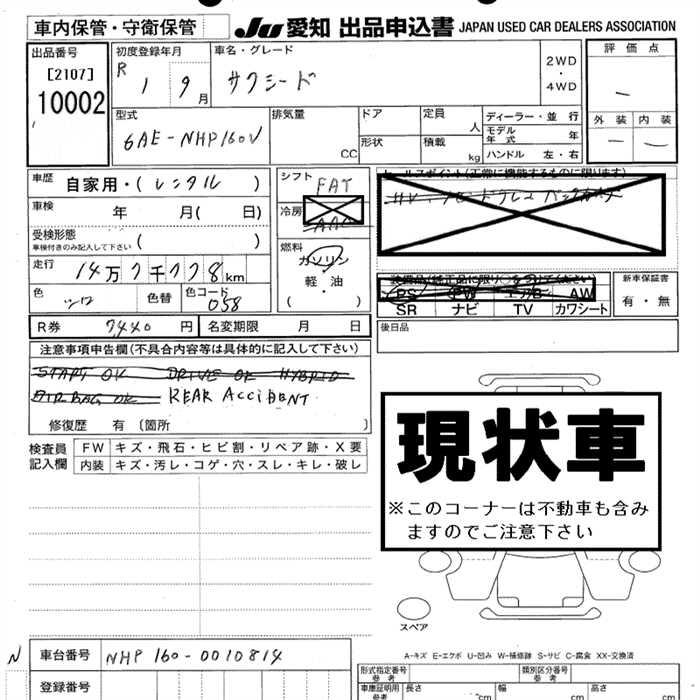 車内保管・守衛保管 JU 愛知 出品申込書 JAPAN USED CAR DEALERS ASSOCIATION
出品番号 初度登録年月 車名・グレード 2WD・4WD 評価点
[2107] R 1 9月 サクシード
10002 型式 排気量 ドア 定員 ディーラー・並行 外装 内装
6AE-NHP160V CC 形状 人 積載 kg モデル年式 年 ハンドル 左・右
車歴 自家用・(レンタル) シフト FAT セールスポイント(正常に機能するものに限ります)
車検 年 月( 日) 冷房 AAC
受検形態 ( )
車検付きのみ記入して下さい
燃料 ガソリン 軽・油 ・( )
走行 14万7千778km
PS PW エアB AW 新車保証書
SR ナビ TV カワシート 有・無
色 シロ 色替 色コード 058
R券 7440円 名変期限 月 日 後日品
注意事項申告欄(不具合内容等は具体的に記入して下さい)
START OK DRIVE OK HYBRID
AIR BAG OK REAR ACCIDENT
修復歴 有〔箇所 〕
検査員記入欄 FW キズ・飛石・ヒビ割・リペア跡・X要
内装 キズ・汚レ・コゲ・穴・スレ・キレ・破レ
現状車
※このコーナーは不動車も含み
ますのでご注意下さい
スペア
A-キズ E-エクボ U-凹み W-補修跡 S-サビ C-腐食 XX-交換済
N 車台番号 NHP160-0010814
登録番号
形式指定番号 参考 類別区分番号 参考
車庫証明用 参考 長さ cm 幅 cm 高さ cm